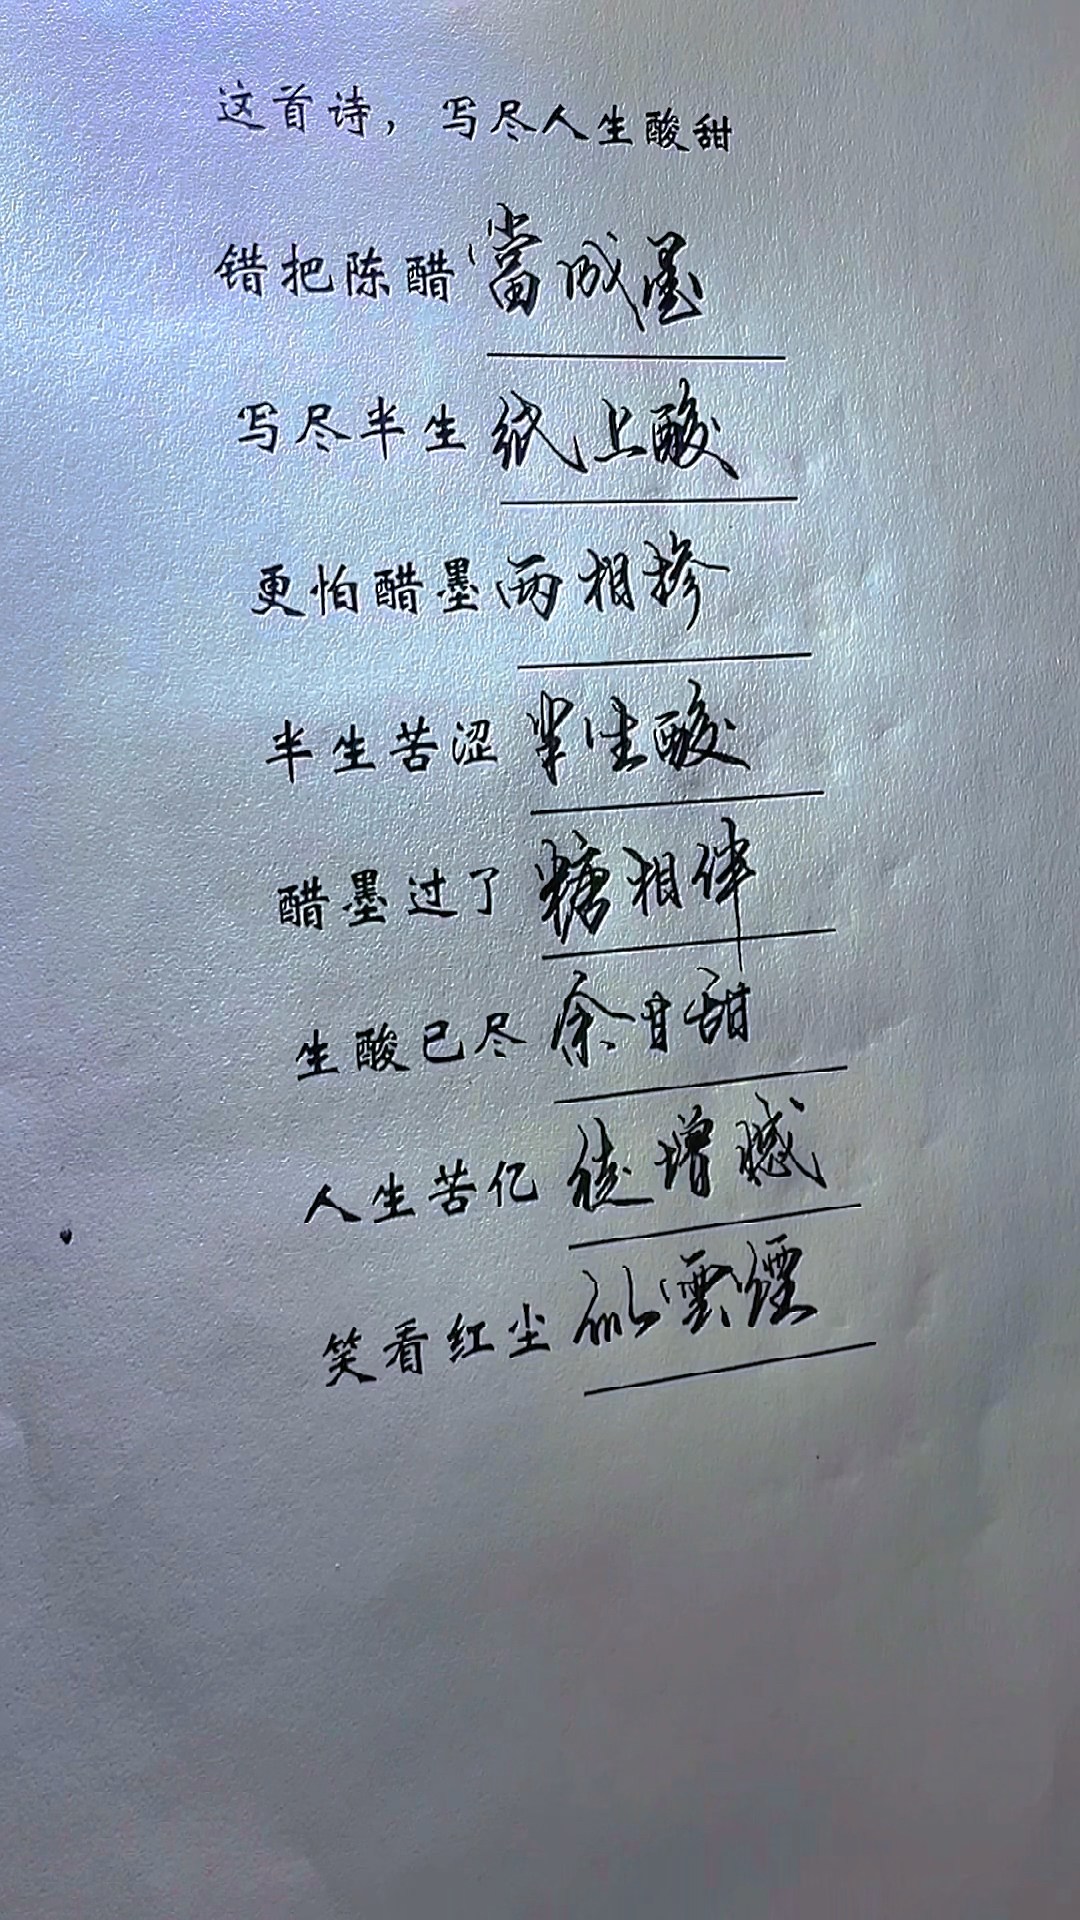 这首诗，写尽人生酸甜
错把陈醋當成墨
写尽半生纸上酸
更怕醋墨两相掺
半生苦涩半生酸
醋墨过了糖相伴
生酸已尽余甘甜
人生苦亿徒增憾
笑看红尘似雲煙